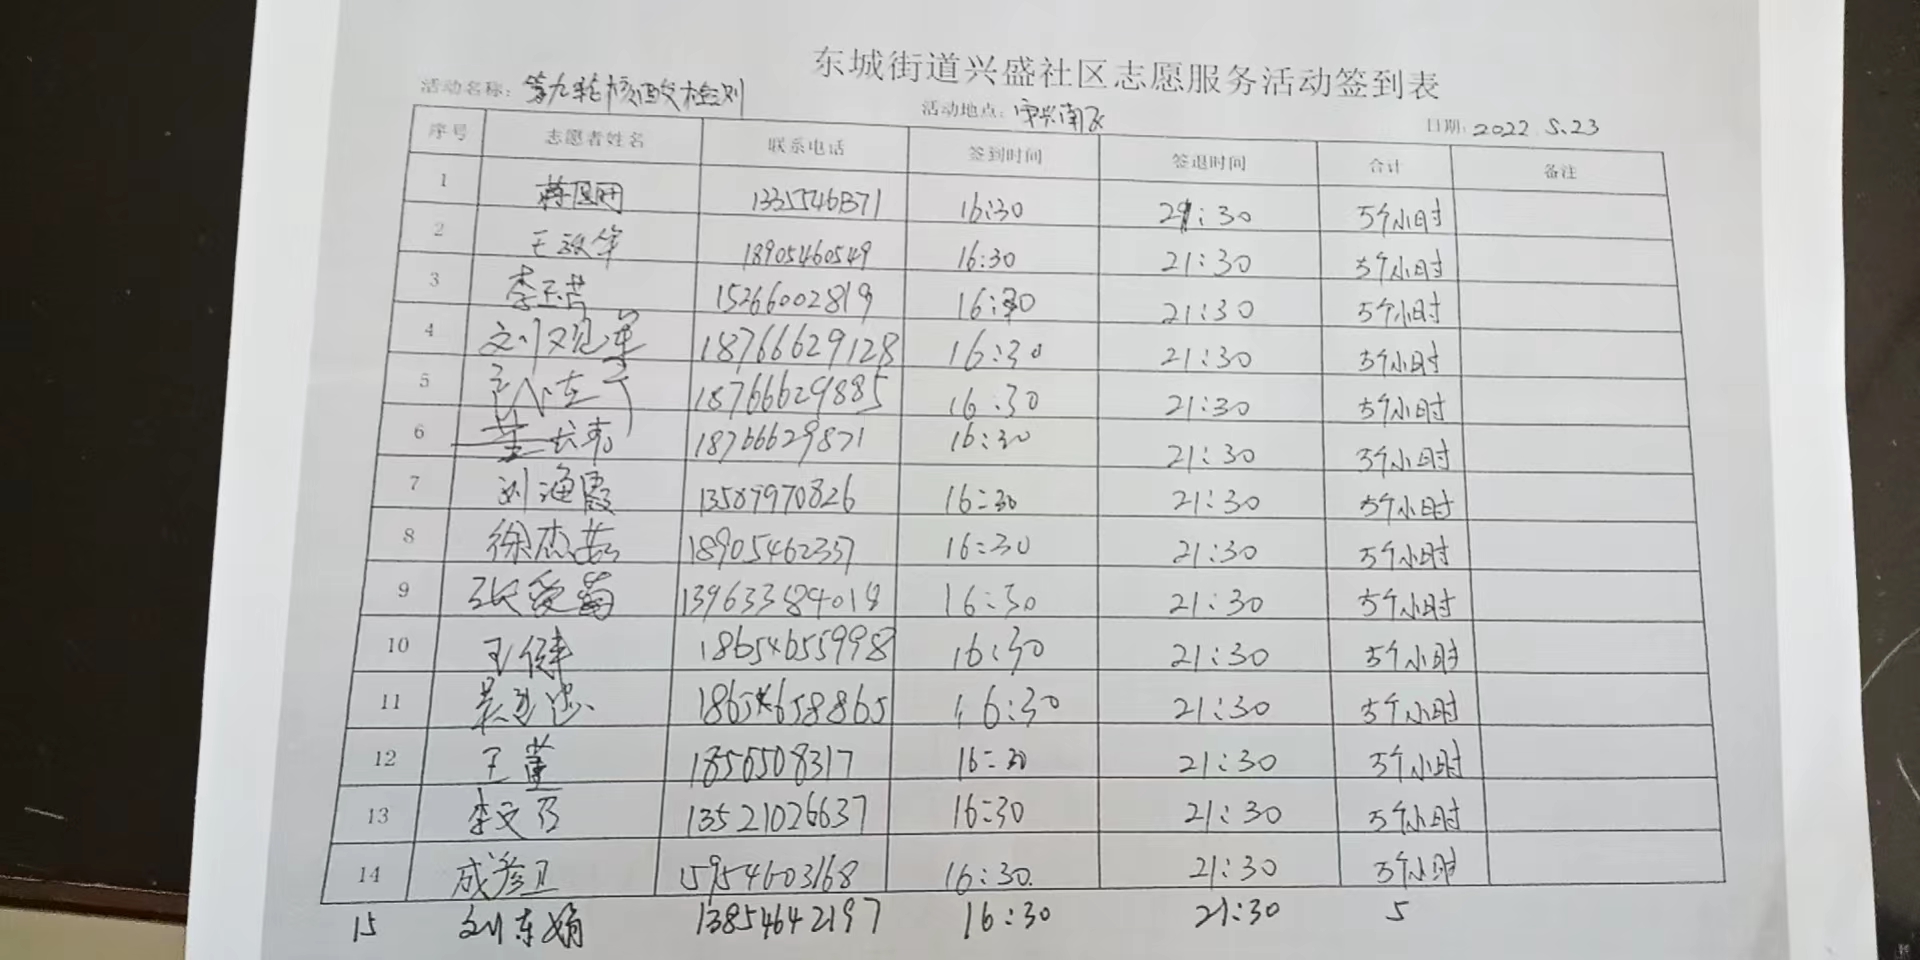 东城街道兴盛社区志愿服务活动签到表
活动名称：第九轮核酸检测 活动地点： 日期：2022.5.23
序号 志愿者姓名 联系电话 签到时间 签退时间 合计 备注
1 16:30 21:30 5个小时
2 18905460549 16:30 21:30 5个小时
3 15266002819 16:30 21:30 5个小时
4 刘观军 18766629128 16:30 21:30 5个小时
5 18766629885 16:30 21:30 5个小时
6 18766629871 16:30 21:30 5个小时
7 刘海霞 13589970826 16:30 21:30 5个小时
8 徐杰茹 18905462337 16:30 21:30 5个小时
9 张爱菊 13963384018 16:30 21:30 5个小时
10 王健 18654655998 16:30 21:30 5个小时
11 18654658865 16:30 21:30 5个小时
12 王董 1856508317 16:30 21:30 5个小时
13 李文乃 13521026637 16:30 21:30 5个小时
14 成彦卫 15954603168 16:30 21:30 5个小时
15 刘东娟 13854642197 16:30 21:30 5